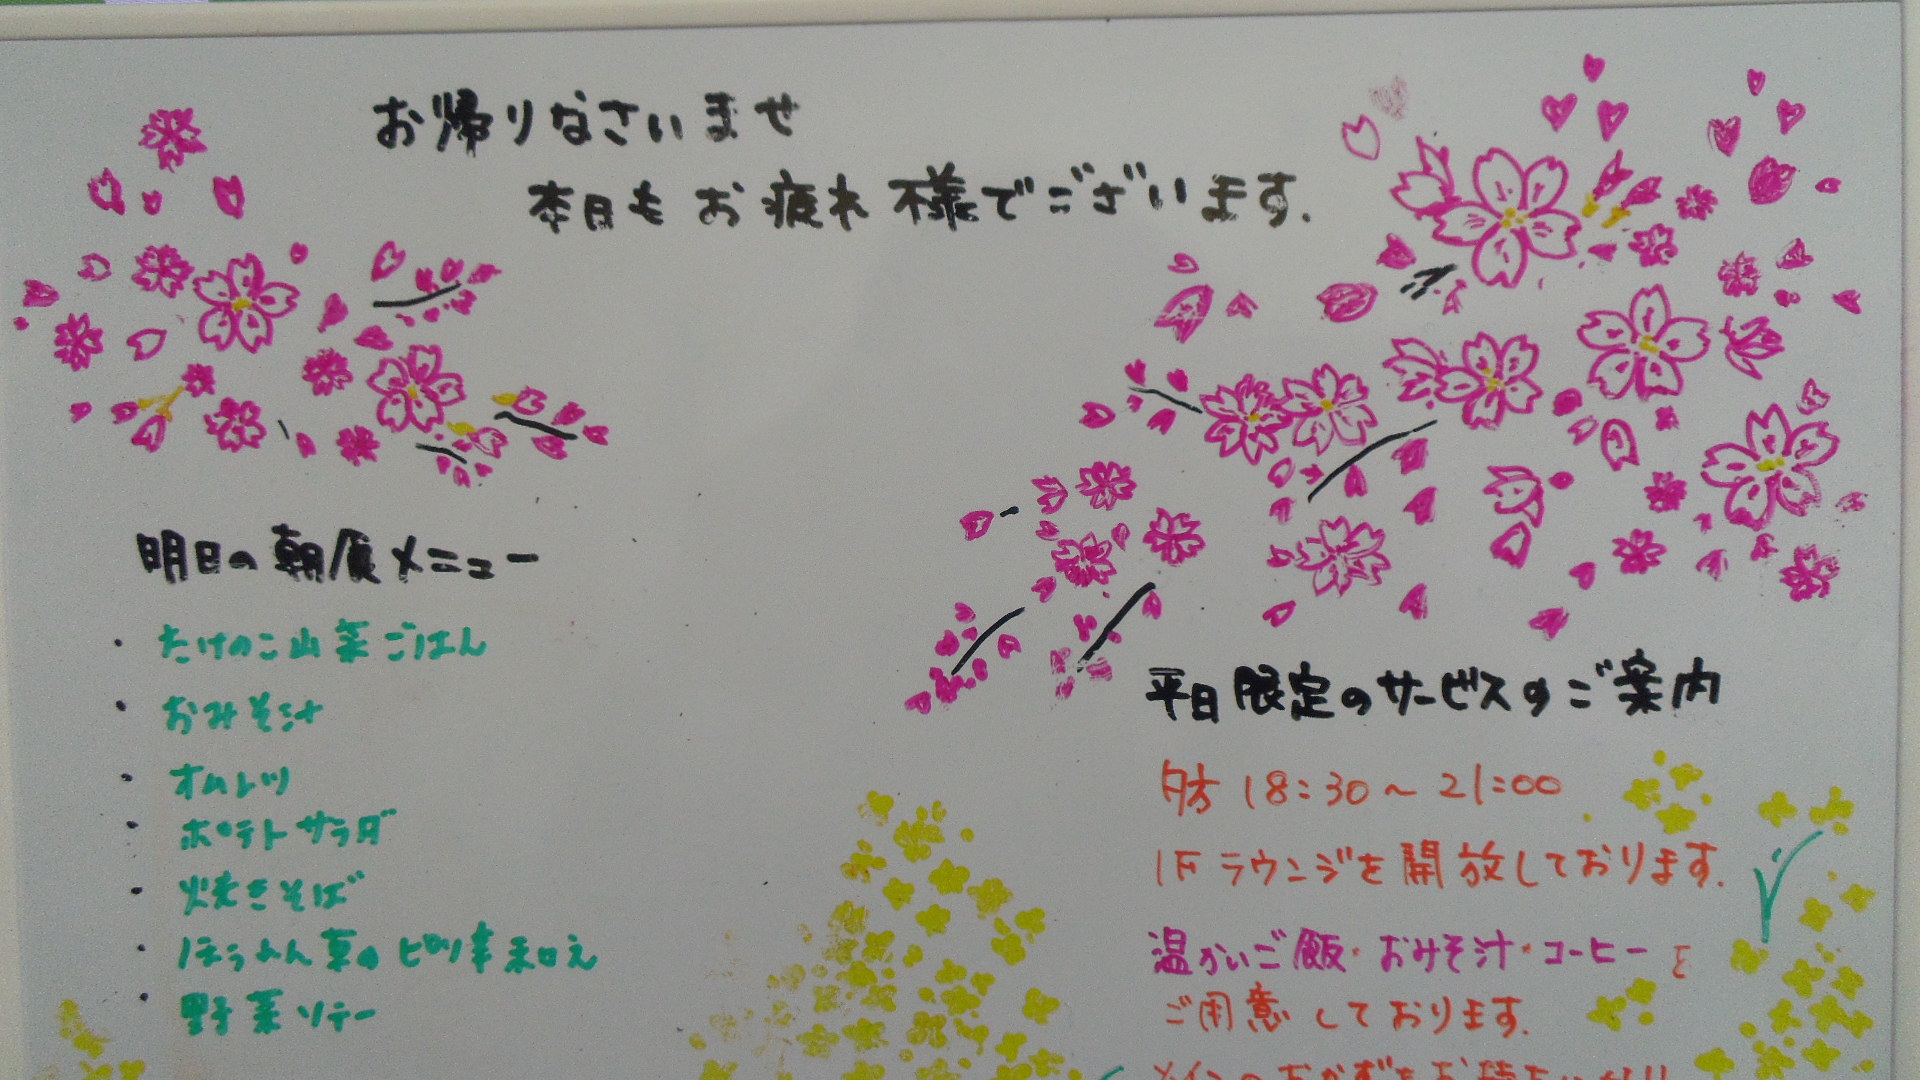 お帰りなさいませ
本日もお疲れ様でございます.
明日の朝食メニュー
・たけのこ山菜ごはん
・おみそ汁
・オムレツ
・ポテトサラダ
・焼きそば
・ほうれん草のピリ辛和え
・野菜ソテー
平日限定のサービスのご案内
夕方 18:30～21:00
1Fラウンジを開放しております.
温かいご飯・おみそ汁・コーヒーを
ご用意しております.
メインのおかずを